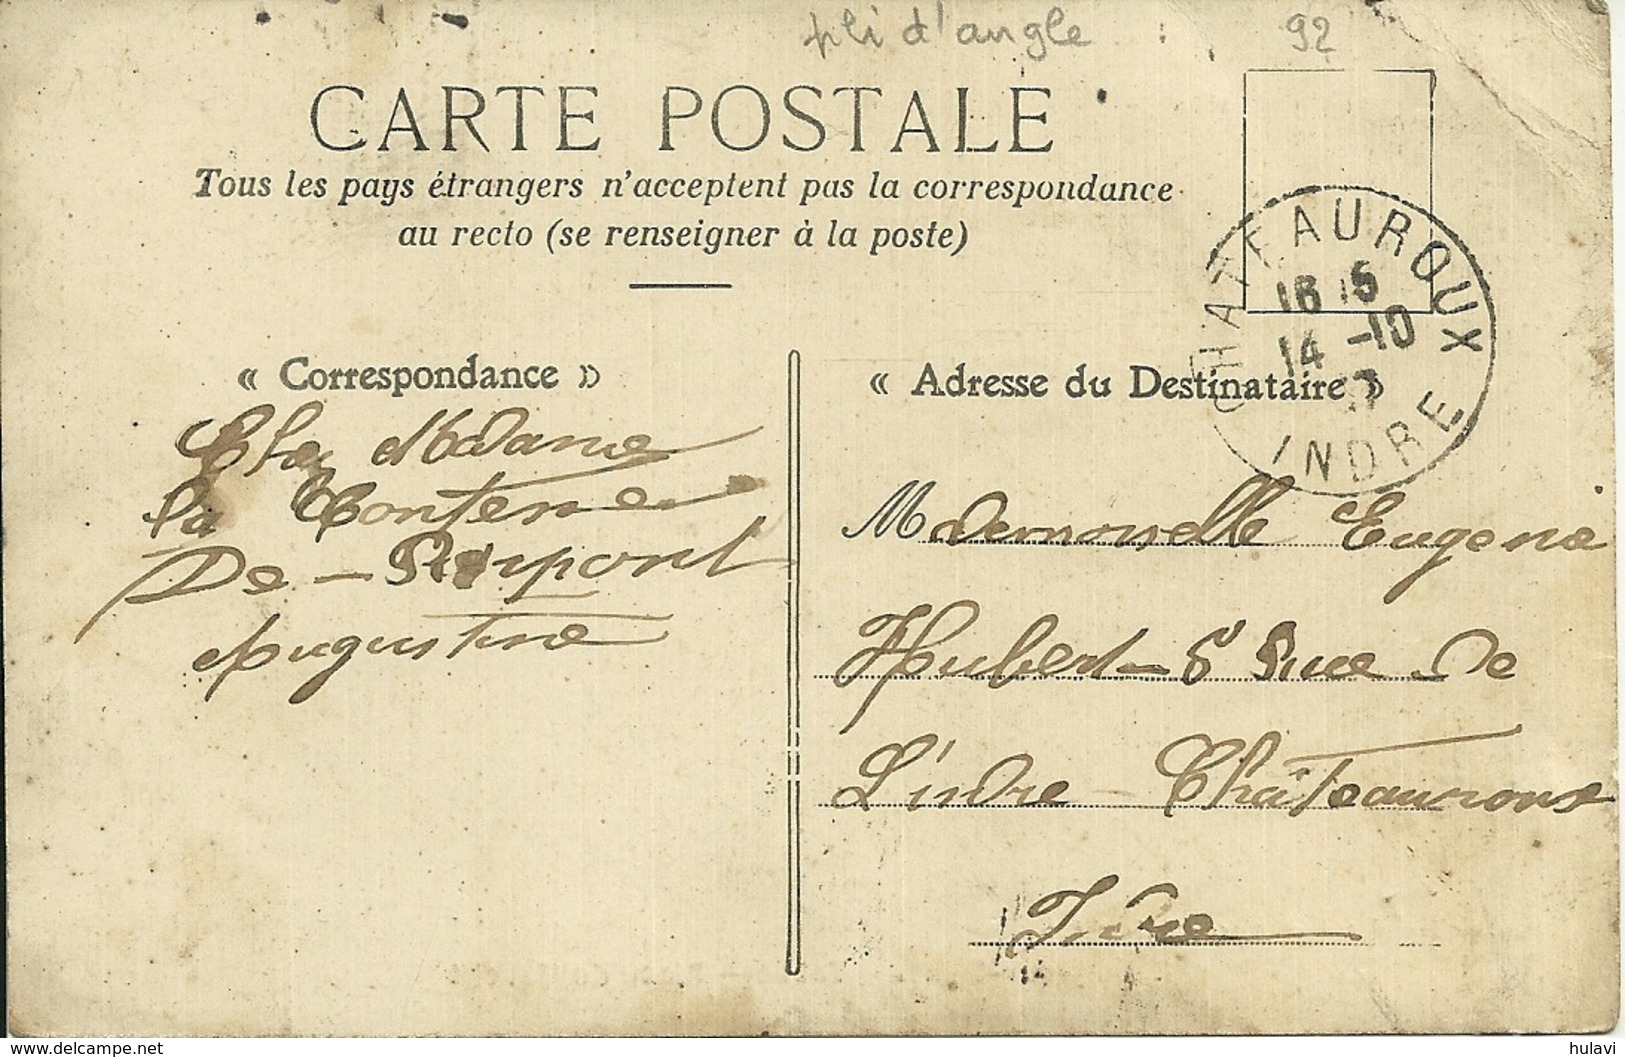 pli d'angle 92
CARTE POSTALE
Tous les pays étrangers n'acceptent pas la correspondance
au recto (se renseigner à la poste)
CHATEAUROUX
14 -10
INDRE
« Correspondance »
« Adresse du Destinataire »
Chez Madame
la Contesse
De -
Augustine
Mademoiselle Eugenie
Hubert - 5 Rue De
L'indre Châteauroux
Indre
delcampe.net
hulavi